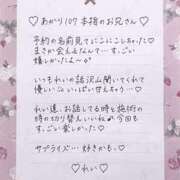 ♡あがり107 本指のお兄さん♡
予約の名前見てにこにこしちゃった♡
まさか会えるなんて…すっごい
嬉しかったよ〜🎵
いつもれいの話沢山聞いてくれて
優しい♡いっぱいせんきゅ♡
れい逹、お話してる時と施術の
時の切り替えいい私 今回も
すっごい楽しかった♡
サプライズ…好きかも♡
♡れい♡